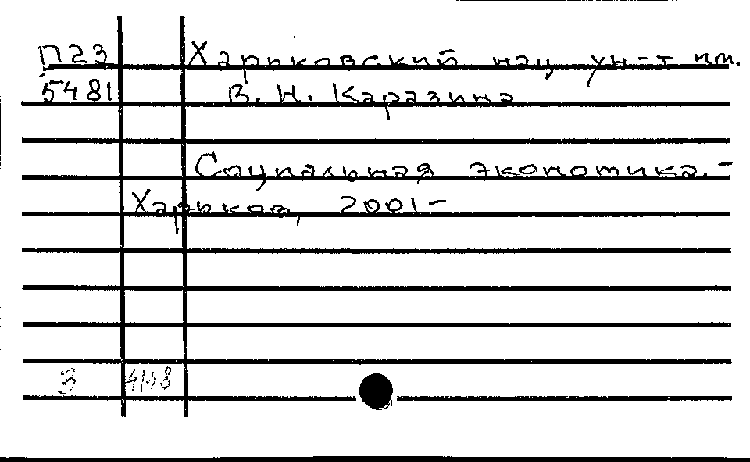 П23 Харьковский нац ун-т им.
5481 В. Н. Каразина
Социальная экономика. -
Харьков, 2001-
3